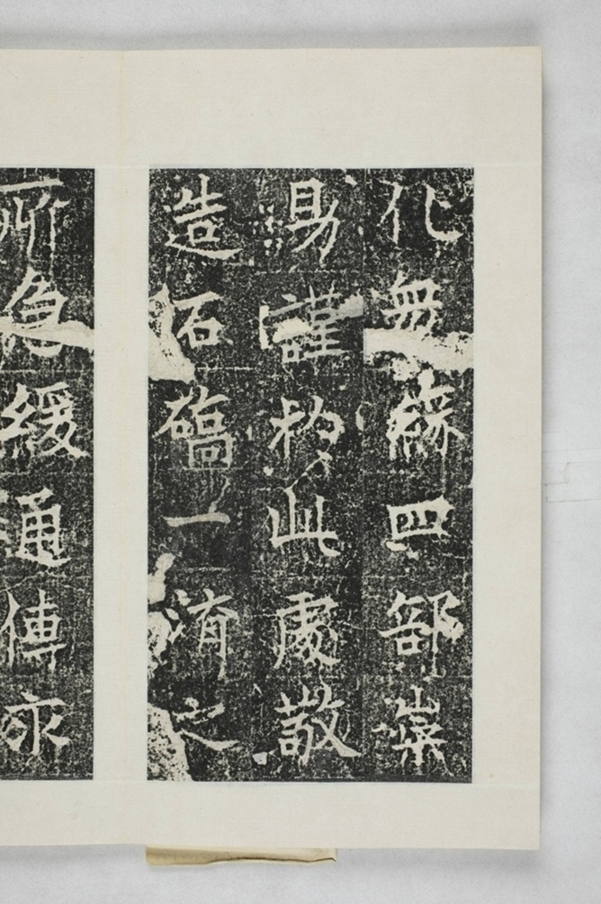 化無緣四部
謹於此處敬
造石一之
所急緩通傳